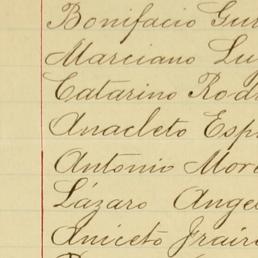 Bonifacio Gu
Marciano Lu
Catarino Rod
Anacleto Esp
Antonio More
Lázaro Ange
Aniceto Frair